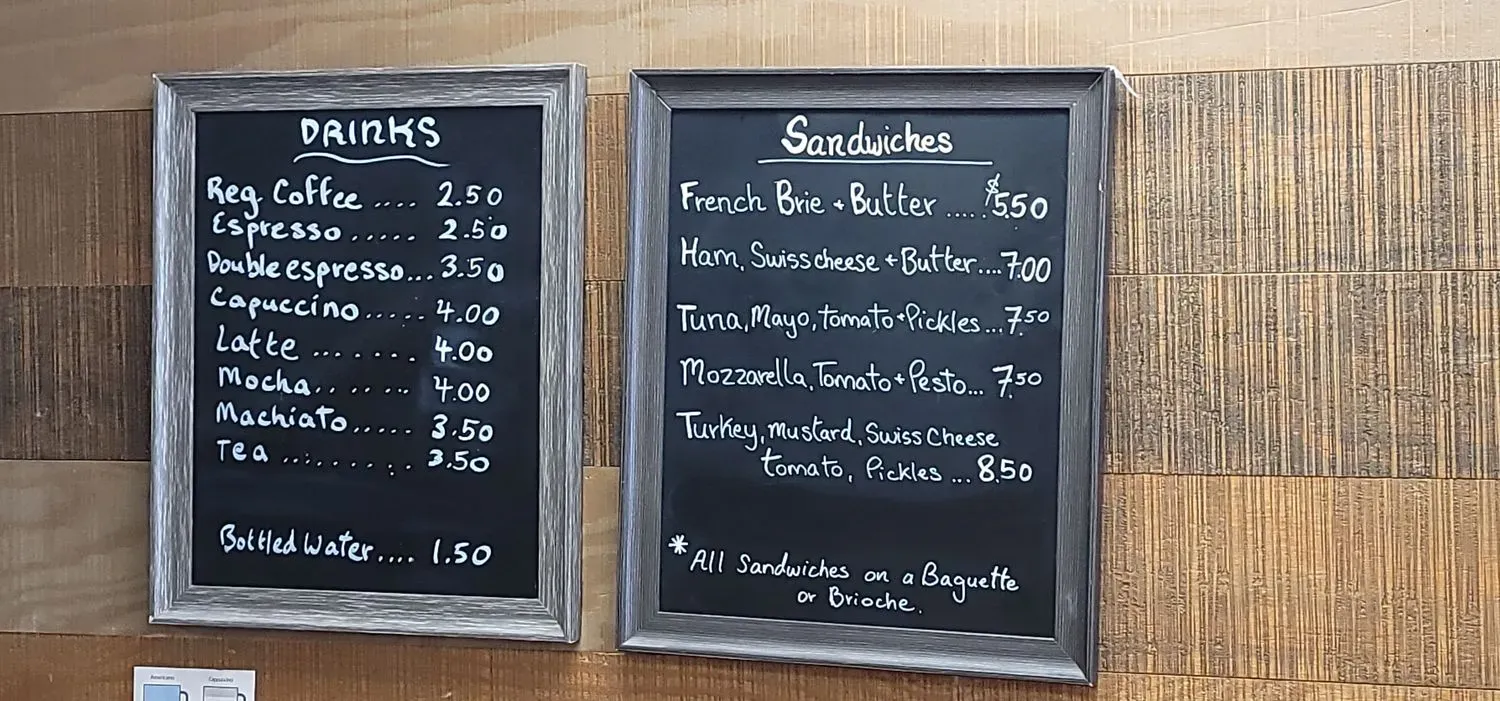 DRINKS
Reg. Coffee .... 2.50
Espresso ..... 2.50
Double espresso... 3.50
Capuccino ..... 4.00
Latte ....... 4.00
Mocha....... 4.00
Machiato ..... 3.50
Tea ......... 3.50
Bottled Water .... 1.50
Sandwiches
French Brie + Butter ..... $5.50
Ham, Swiss cheese + Butter .... 7.00
Tuna, Mayo, tomato + Pickles ... 7.50
Mozzarella, Tomato + Pesto... 7.50
Turkey, mustard, Swiss Cheese
tomato, Pickles ... 8.50
* All Sandwiches on a Baguette
or Brioche.
Americano Cappuccino